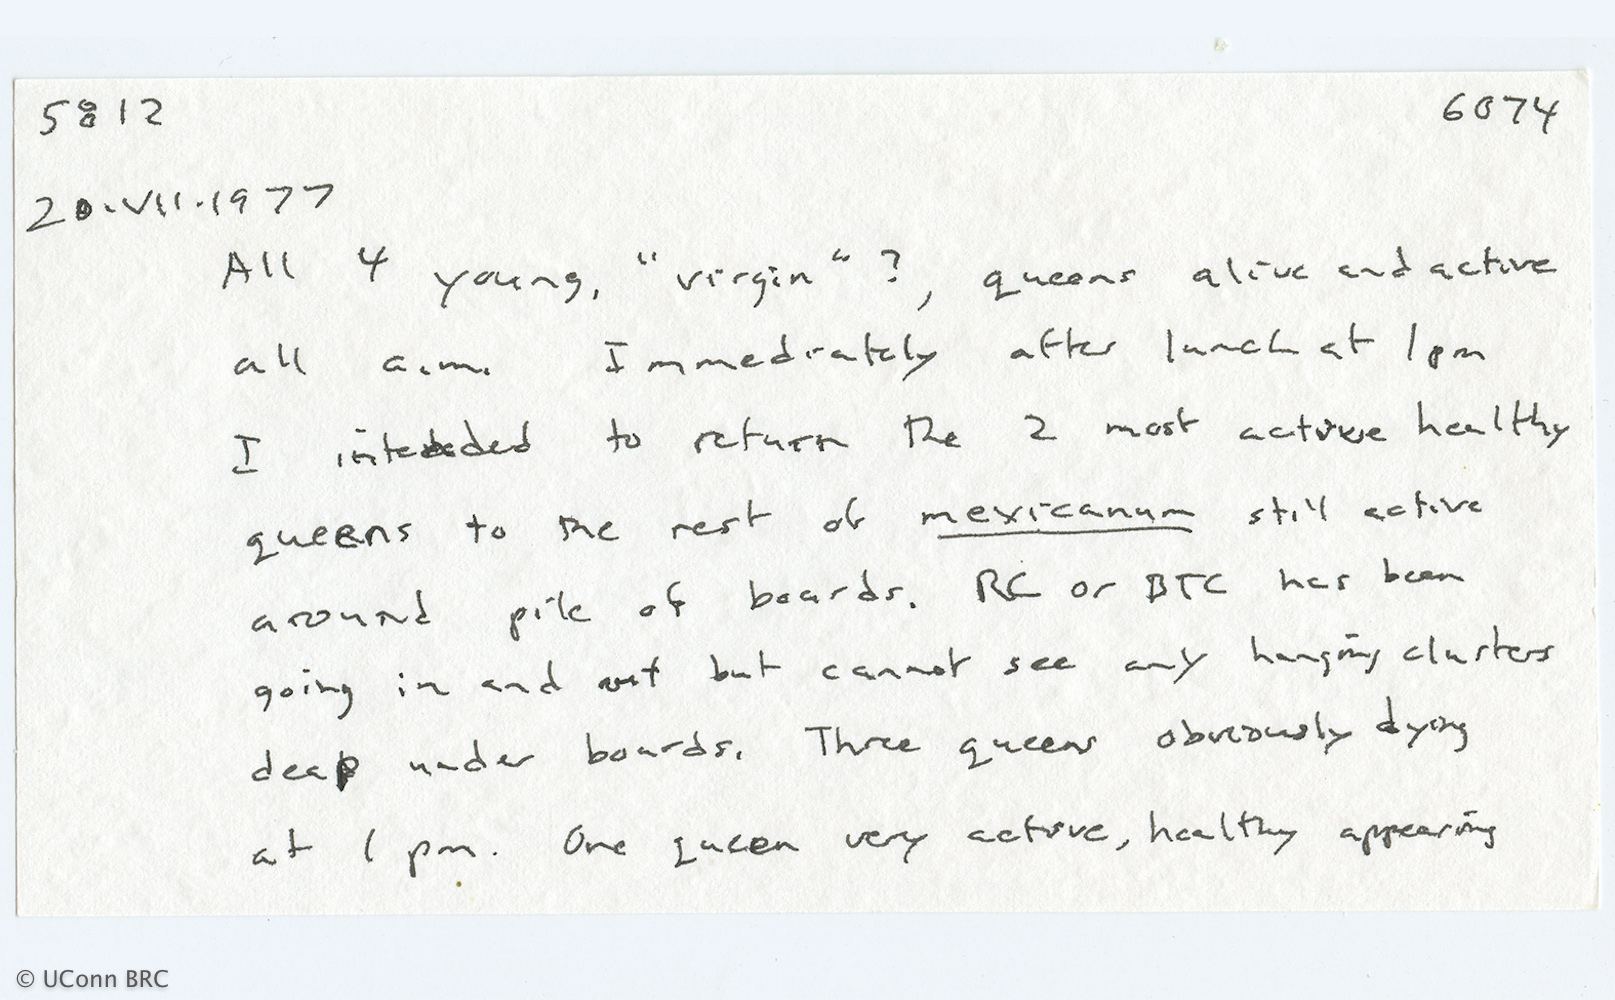 5812 6074
20.VII.1977
All 4 young, "virgin"?, queens alive and active
all a.m. Immediately after lunch at 1pm
I intended to return the 2 most active healthy
queens to the rest of mexicanum still active
around pile of boards. RC or BTC has been
going in and out but cannot see any hanging clusters
deep under boards. Three queens obviously dying
at 1 pm. One queen very active, healthy appearing
© UConn BRC